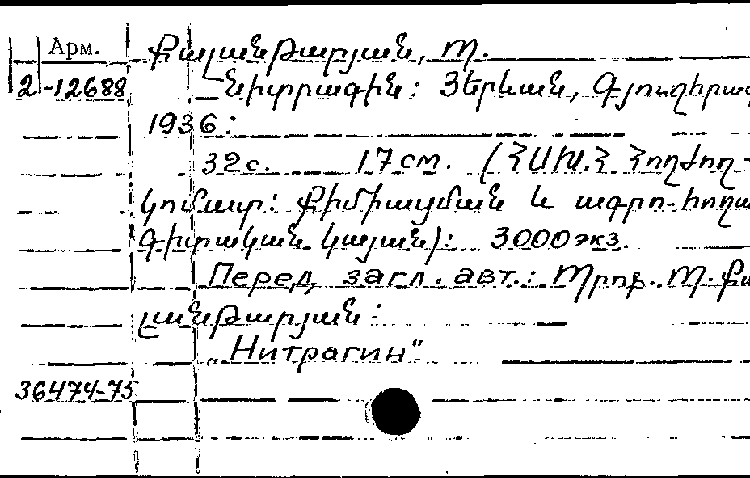 Арм.
Քալանթարյան, Պ.
2-12688 Նիտրագին: Յերևան, Գյուղհրատ
1936:
32 с. 17 см. (ՀՍԽՀ Հողժող-
կոմատ: Քիմիացման և ագրո-հողա
գիտական կայան): 3000 экз.
Перед загл. авт.: Պրոֆ. Պ. Քա
լանթարյան:
„Нитрагин"
36474-75